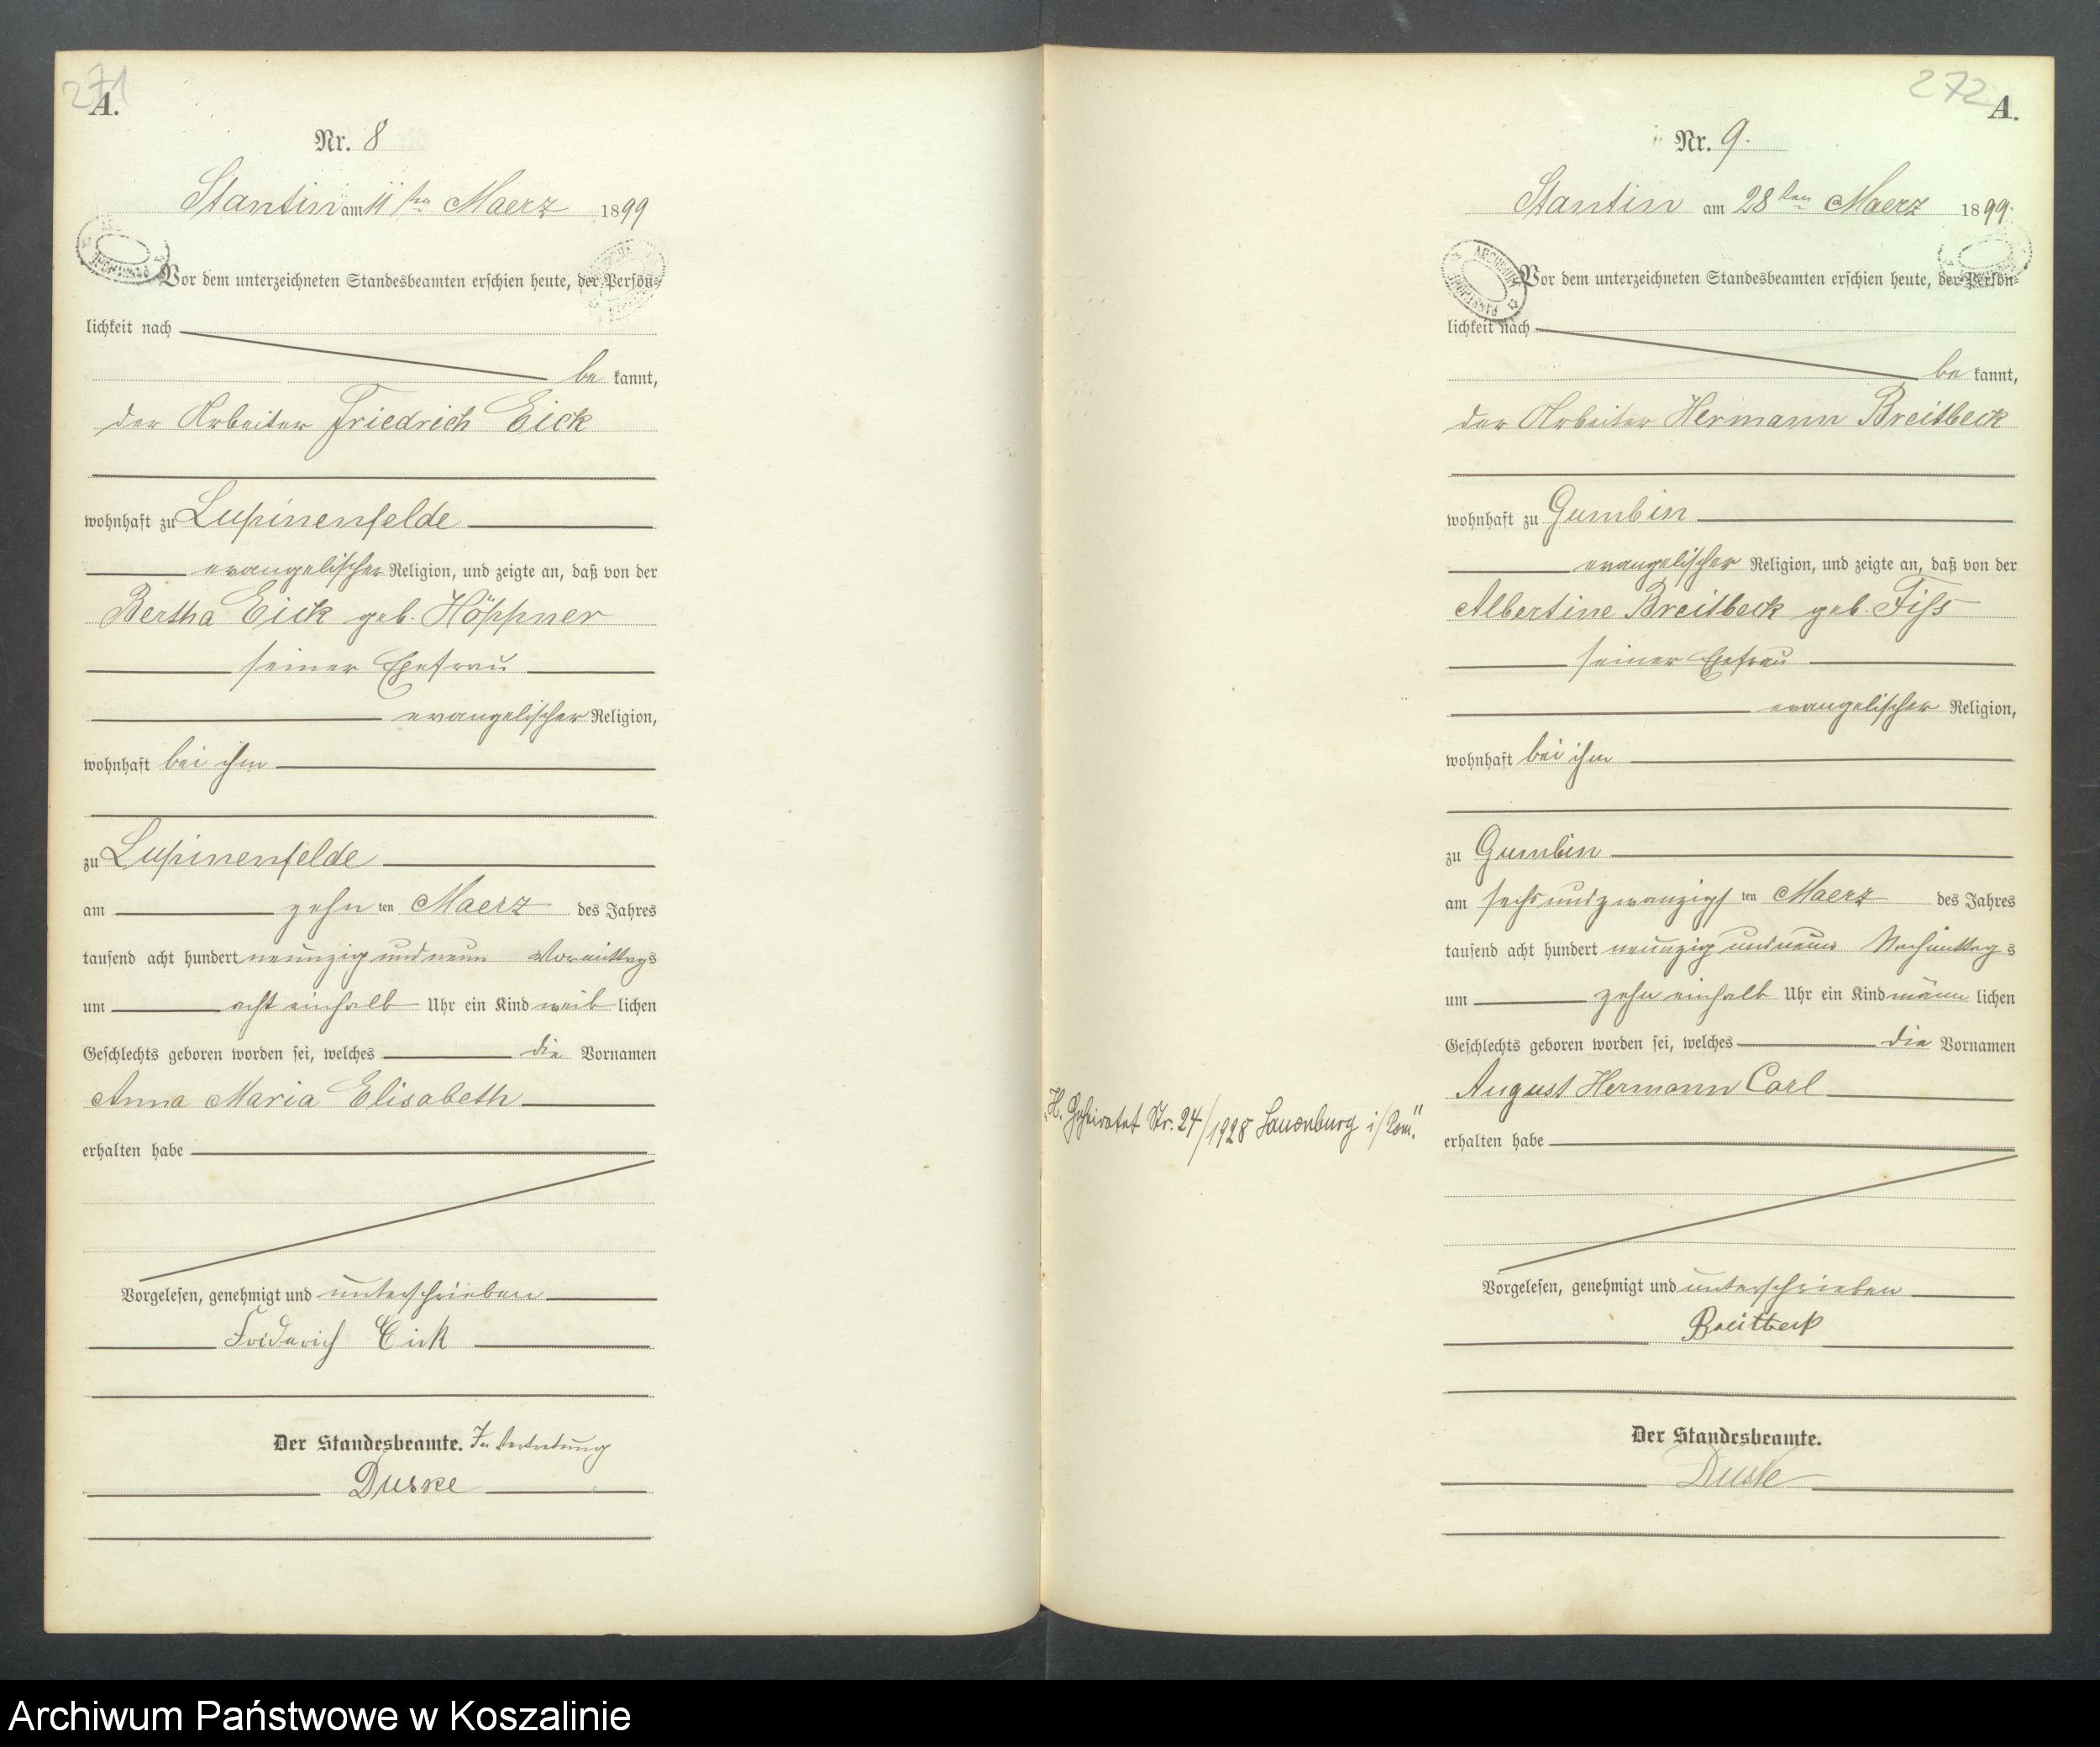 271
A.
Nr. 8
Stantin am 11ten Maerz 1899
Vor dem unterzeichneten Standesbeamten erschien heute, der Persön-
lichkeit nach
be kannt,
der Arbeiter Friedrich Eick
wohnhaft zu Lupinenfelde
evangelischer Religion, und zeigte an, daß von der
Bertha Eick geb. Höppner
seiner Ehefrau
evangelischer Religion,
wohnhaft bei ihm
zu Lupinenfelde
am zehn ten Maerz des Jahres
tausend acht hundert neunzig und neun Vormittags
um acht einhalb Uhr ein Kind weib lichen
Geschlechts geboren worden sei, welches die Vornamen
Anna Maria Elisabeth
erhalten habe
Vorgelesen, genehmigt und unterschrieben
Friderich Eick
Der Standesbeamte. In Vertretung
Duske
272
A.
Nr. 9.
Stantin am 28ten Maerz 1899.
ARCHIWUM
Vor dem unterzeichneten Standesbeamten erschien heute, der Persön-
lichkeit nach
be kannt,
der Arbeiter Hermann Breitbeck
wohnhaft zu Gumbin
evangelischer Religion, und zeigte an, daß von der
Albertine Breitbeck geb. Fiss
seiner Ehefrau
evangelischer Religion,
wohnhaft bei ihm
zu Gumbin
am sechs und zwanzigs ten Maerz des Jahres
tausend acht hundert neunzig und neun Nachmittag s
um zehn einhalb Uhr ein Kind männ lichen
Geschlechts geboren worden sei, welches die Vornamen
August Hermann Carl
erhalten habe
„H. Geheiratet Nr. 24/1928 Lauenburg i/Pom."
Vorgelesen, genehmigt und unterschrieben
Breitbeck
Der Standesbeamte.
Duske
Archiwum Państwowe w Koszalinie